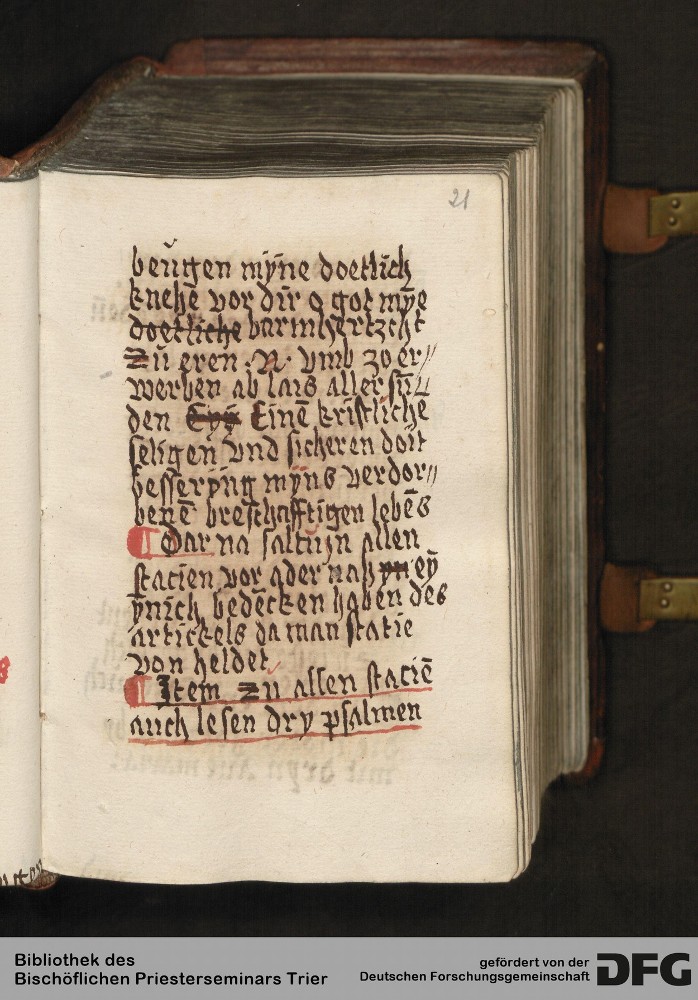 21
beugen mÿne doetlich
knehe vor dir o got mÿe
doetliche barmhertzcht
Zu eren .N. vmb zo er//
werben ab lais aller sun//
den Eyn Einē kristliche
seligen vnd sicheren doit
besserung myns verdor//
benē breschafftigen lebēs
¶ Dar na saltu yn allen
stacien vor oder nach yn eÿ
ÿnich bedēcken haben des
artickels da man statie
von heldet
¶ Item Zu allen staciē
auch lesen dry psalmen
Bibliothek des
Bischöflichen Priesterseminars Trier
gefördert von der
Deutschen Forschungsgemeinschaft
DFG